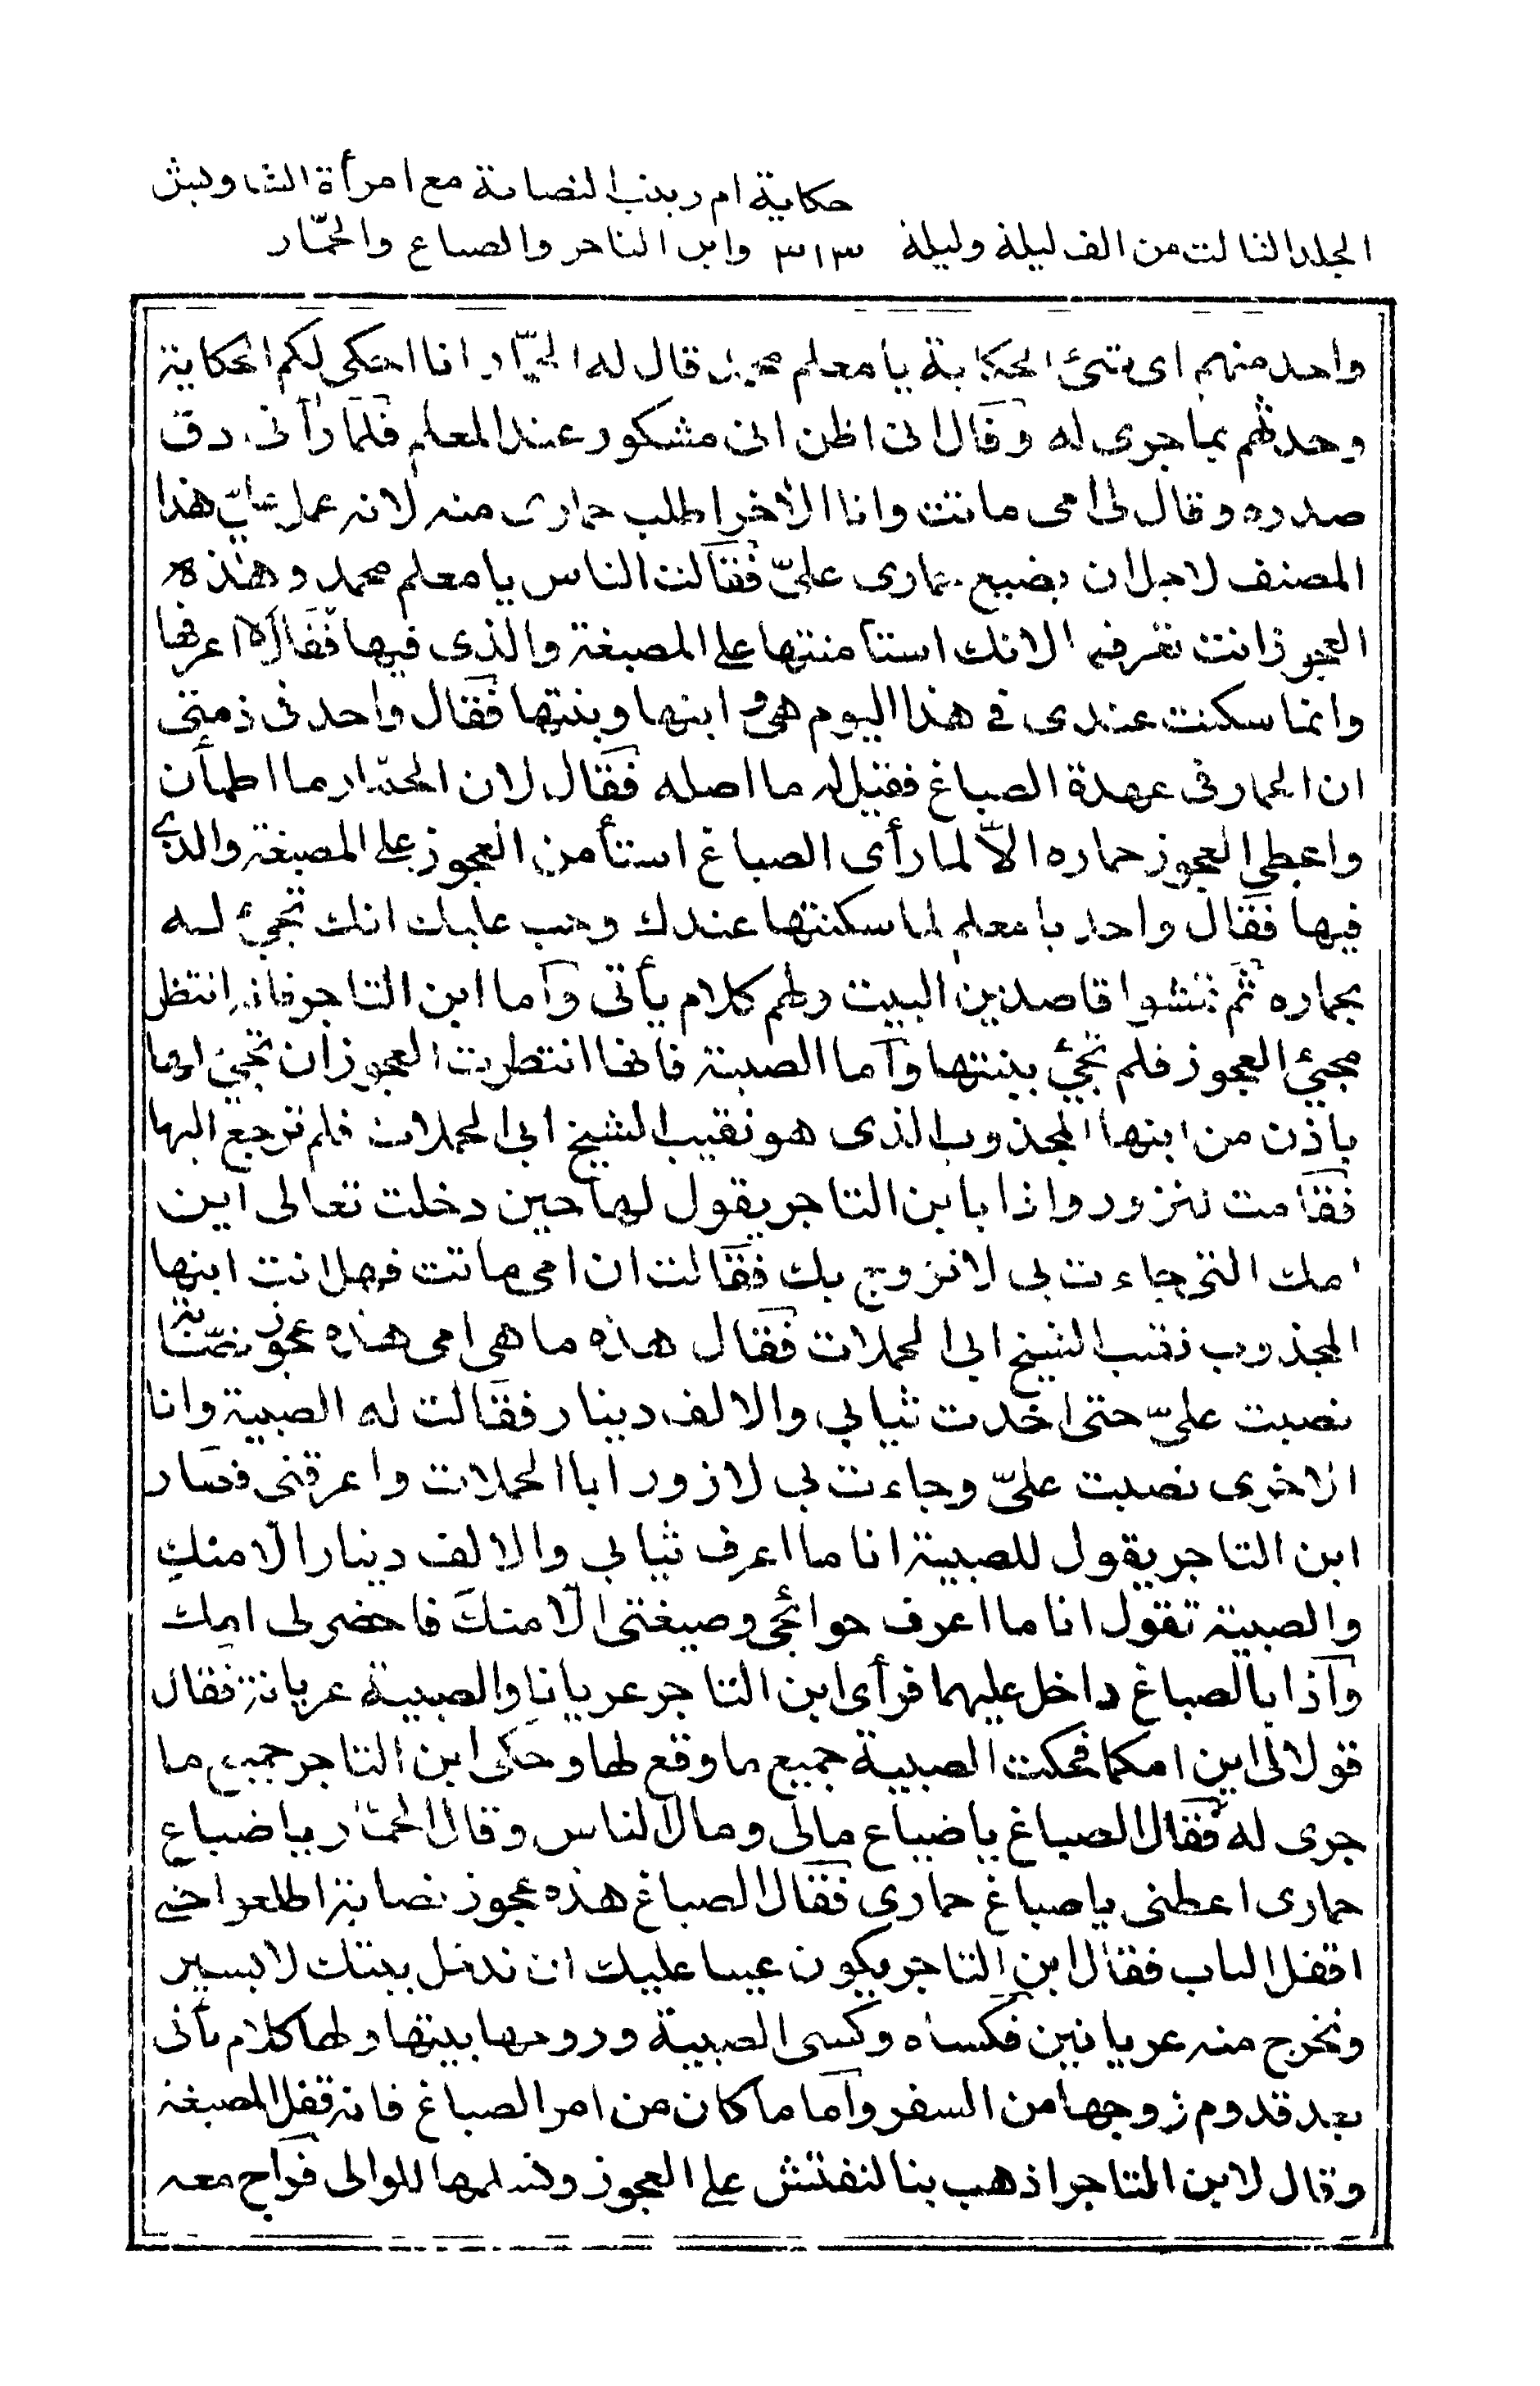 حكاية ام زينب النصابة مع امرأة الشاويش
المجلد الثالث من الف ليلة وليلة ٣١٣ وابن التاجر والصباغ والحمّار
واحد منهم اى شئ الحكاية يا معلم محمد قال له الحمّار انا احكى لكم الحكاية
وحدثهم بما جرى له وقال انى اظن انى مشكور عند المعلم فلما رآنى دق
صدره وقال لى امى ماتت وانا الآخر اطلب حمارى منه لانه عمل علىّ هذا
المصنف لاجل ان يضيع حمارى علىّ فقالت الناس يا معلم محمد وهذه
العجوز انت تعرفها لانك استأمنتها على المصبغة والذى فيها فقال لا اعرفها
وانما سكنت عندى فى هذا اليوم هى وابنها وبنتها فقال واحد فى ذمتى
ان الحمار فى عهدة الصباغ فقيل له ما اصله فقال لان الحمّار ما اطمأن
واعطى العجوز حماره الّا لما رأى الصباغ استأمن العجوز على المصبغة والذى
فيها فقال واحد يا معلم لما سكنتها عندك وجب عليك انك تجئ له
بحماره ثم تمشوا قاصدين البيت ولهم كلام يأتى وأما ابن التاجر فانه انتظر
مجئ العجوز فلم تجئ ببنتها وأما الصبية فانها انتظرت العجوز ان تجئ لها
باذن من ابنها المجذوب الذى هو نقيب الشيخ ابى الحملات فلم ترجع اليها
فقامت لتزور واذا بابن التاجر يقول لها حين دخلت تعالى اين
امك التى جاءت بى لاتزوج بك فقالت ان امى ماتت فهل انت ابنها
المجذوب نقيب الشيخ ابى الحملات فقال هذه ما هى امى هذه عجوز نصّابة
نصبت علىّ حتى اخذت ثيابى والالف دينار فقالت له الصبية وانا
الاخرى نصبت علىّ وجاءت بى لازور ابا الحملات واعرتنى فصار
ابن التاجر يقول للصبية انا ما اعرف ثيابى والالف دينار الّا منكِ
والصبية تقول انا ما اعرف حوائجى وصيغتى الّا منكَ فاحضر لى امك
وآذا بالصباغ داخل عليهما فرأى ابن التاجر عريانا والصبية عريانة فقال
قولا لى اين امكما فحكت الصبية جميع ما وقع لها وحكى ابن التاجر جميع ما
جرى له فقال الصباغ يا ضياع مالى ومال الناس وقال الحمّار يا ضياع
حمارى اعطنى يا صباغ حمارى فقال الصباغ هذه عجوز نصابة اطلعوا حتى
اقفل الباب فقال ابن التاجر يكون عيبا عليك ان ندخل بيتك لابسين
ونخرج منه عريانين فكساه وكسى الصبية وروحها بيتها ولها كلام يأتى
بعد قدوم زوجها من السفر وأما ما كان من امر الصباغ فانه قفل المصبغة
وقال لابن التاجر اذهب بنا لنفتش على العجوز ونسلمها للوالى فراح معه